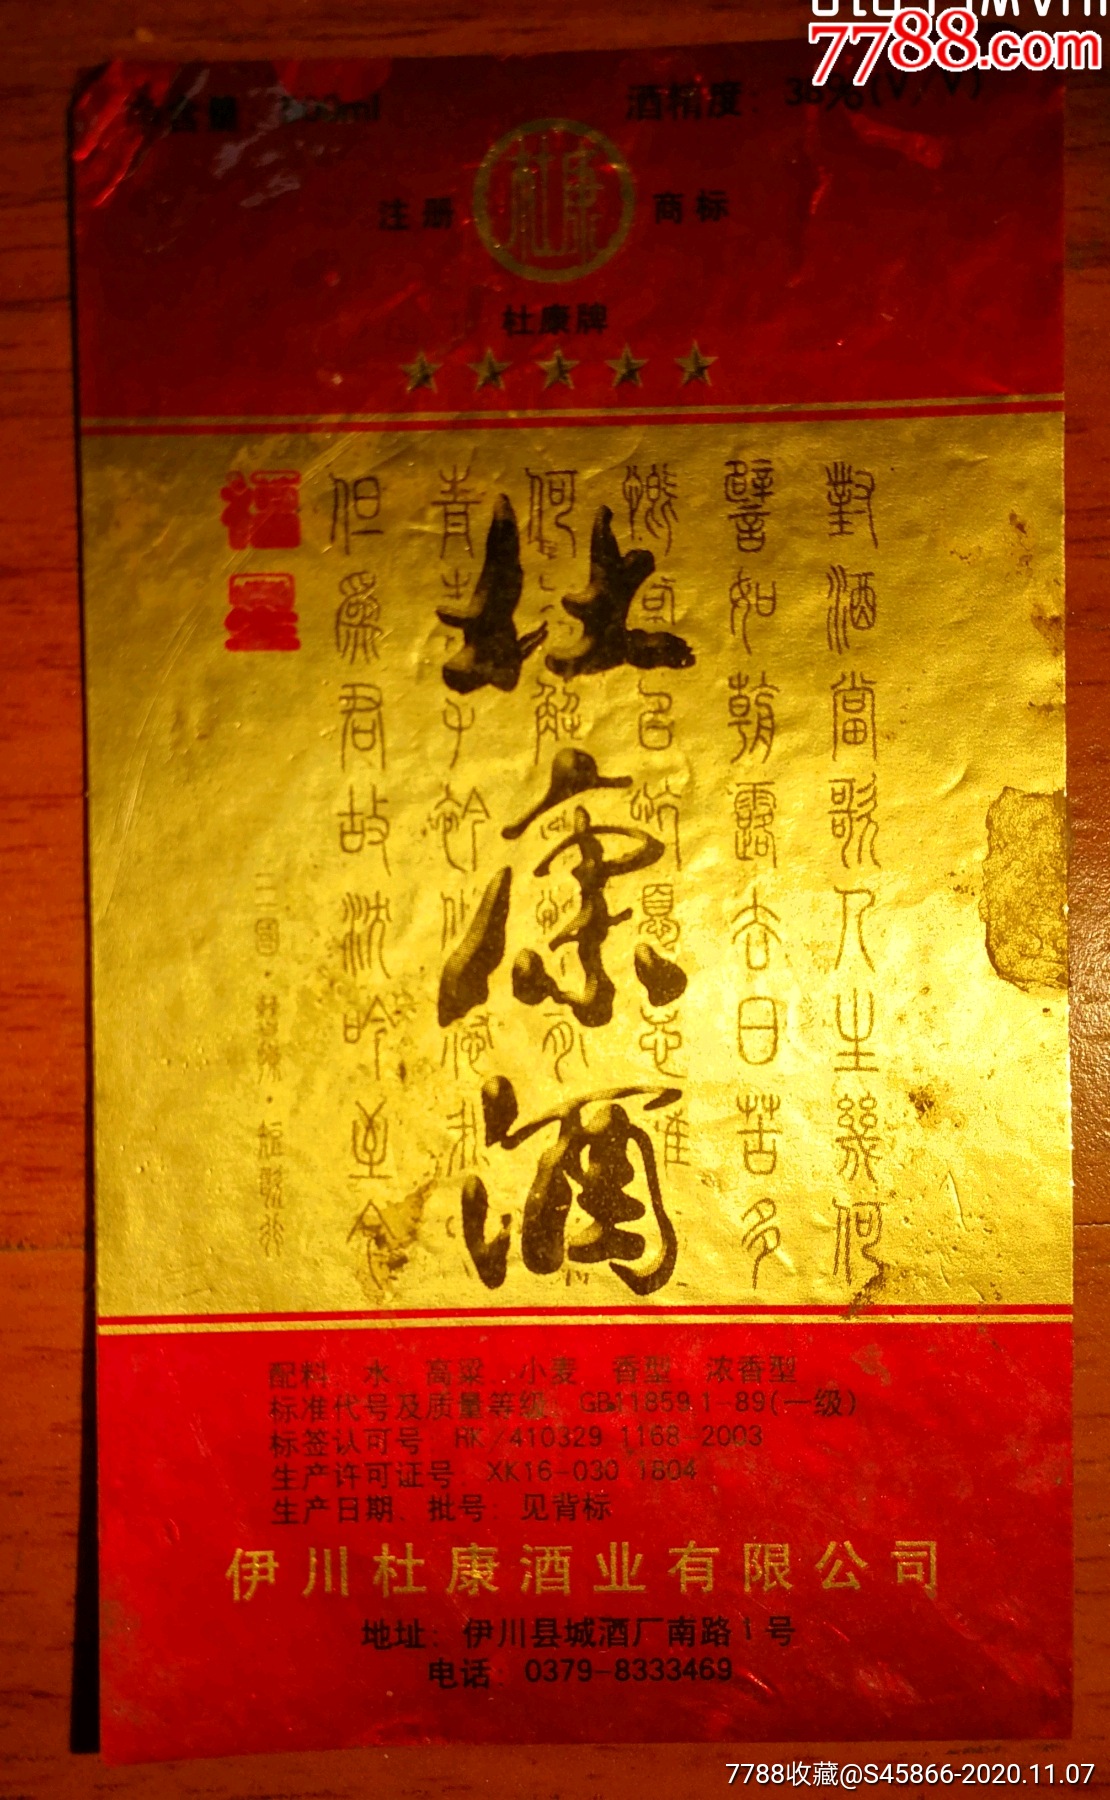 7788.com
酒精度：38%(V/V)
注册
杜康
商标
杜康牌
對酒當歌人生幾何
譬如朝露去日苦多
但為君故沈吟至今
福星
杜康酒
配料 水、高粱、小麦 香型 浓香型
标准代号及质量等级 GB11859.1-89(一级)
标签认可号 RK/410329 1168-2003
生产许可证号 XK16-030 1804
生产日期、批号：见背标
伊川杜康酒业有限公司
地址：伊川县城酒厂南路1号
电话 0379-8333469
7788收藏@S45866-2020.11.07